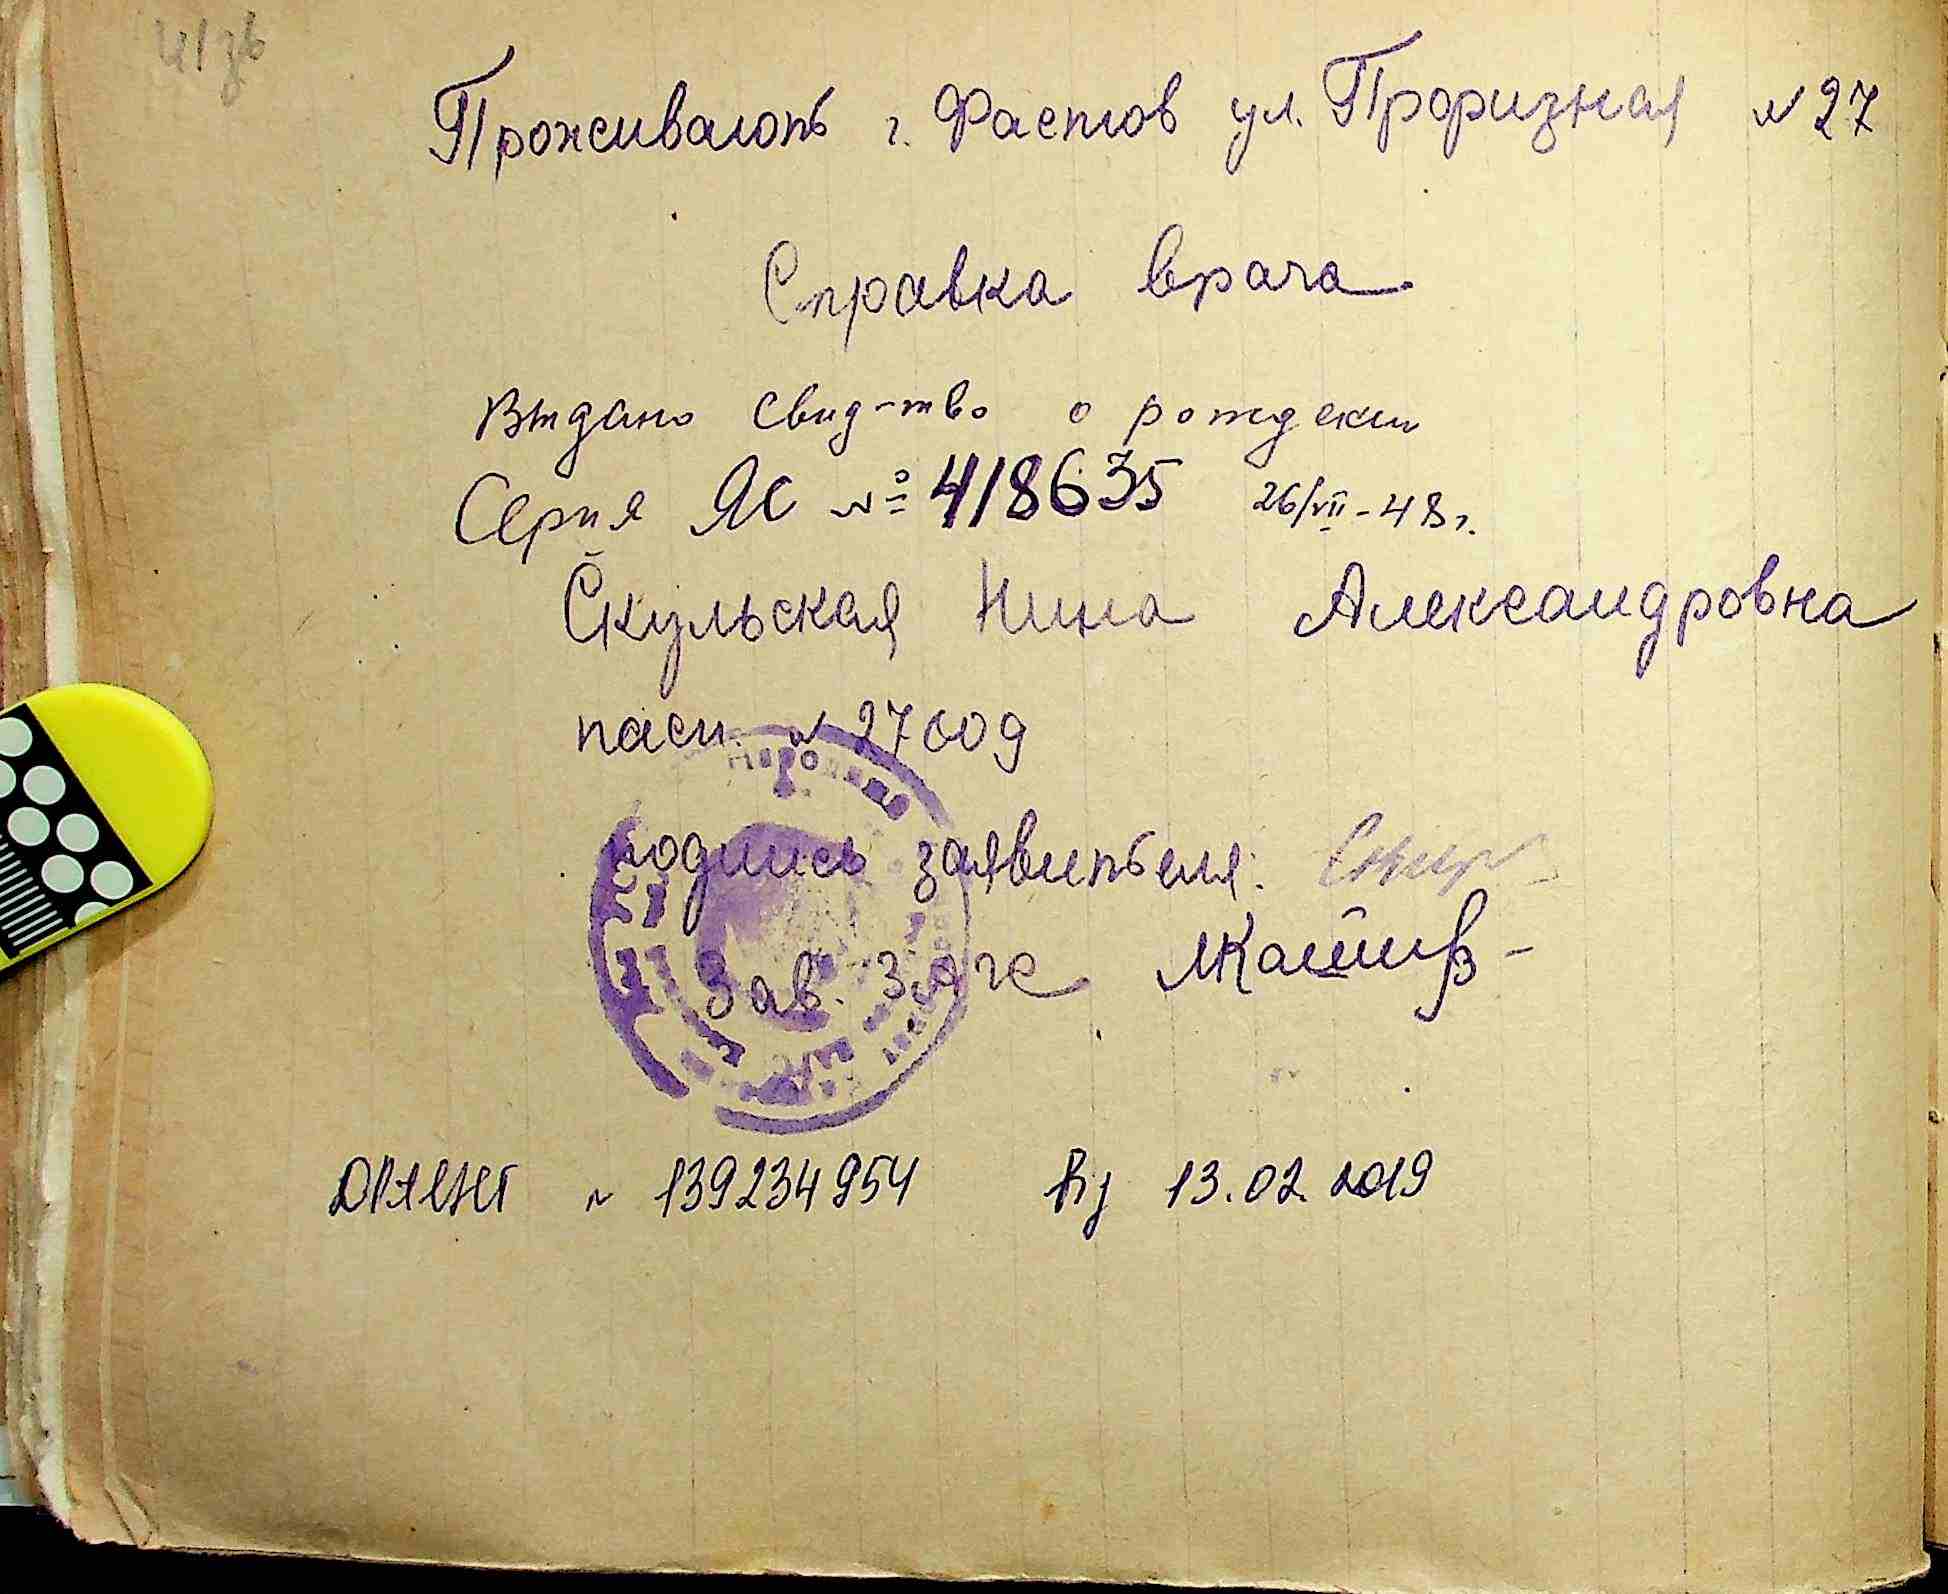 Проживають г. Фастов ул. Проризная № 27
Справка врача
Выдано свид-тво о рождении
Серия ЯС № 418635 26/VII-48 г.
Скульская Нина Александровна
пасп. № 27009
подпись заявителя:
Зав. Загс
№ 139234954 13.02.2019